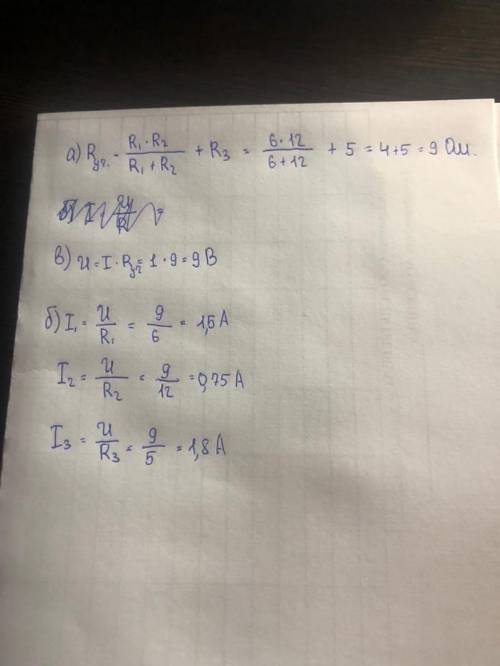 а) Rуч. = R₁·R₂ / R₁+R₂ + R₃ = 6·12 / 6+12 + 5 = 4+5 = 9 Ом.
в) U = I·Rуч = 1·9 = 9 В
б) I₁ = U / R₁ = 9 / 6 = 1,5 А
I₂ = U / R₂ = 9 / 12 = 0,75 А
I₃ = U / R₃ = 9 / 5 = 1,8 А